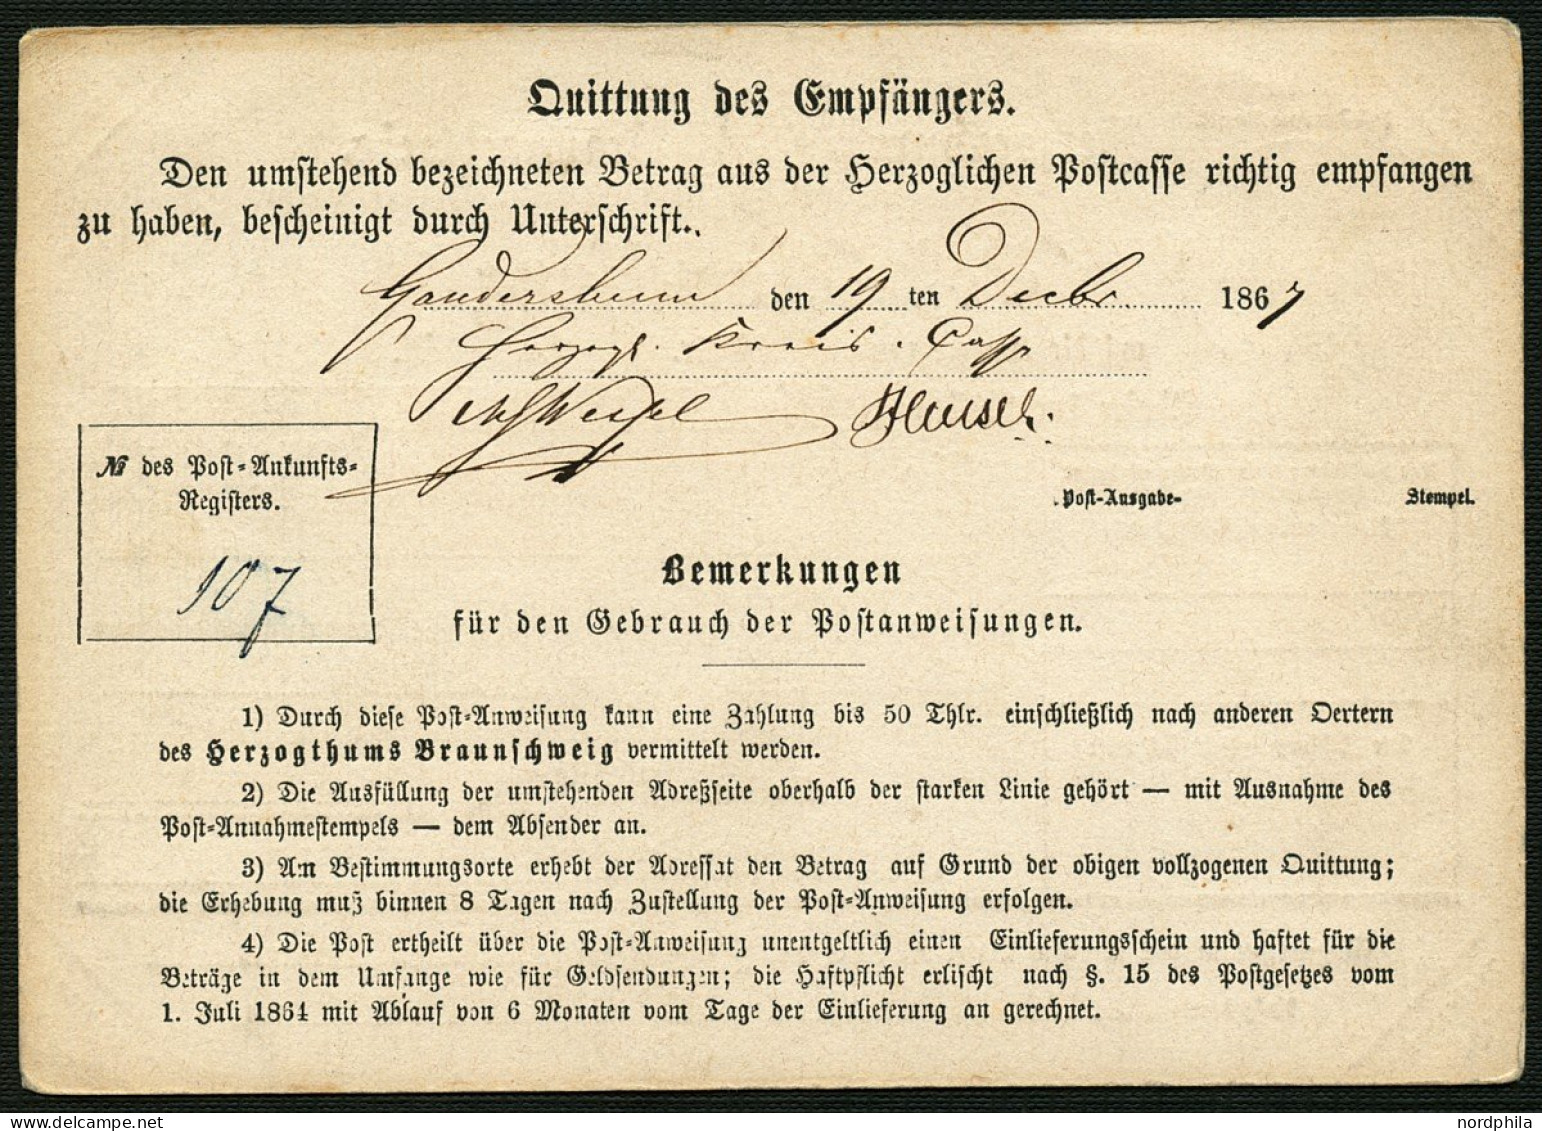 Quittung des Empfängers.
Den umstehend bezeichneten Betrag aus der Herzoglichen Postcasse richtig empfangen
zu haben, bescheinigt durch Unterschrift.
Gandersheim den 19 ten Decbr. 1867
Herzogl. Kreis-Casse
№ des Post-Ankunfts-
Registers.
107
Post-Ausgabe- Stempel.
Bemerkungen
für den Gebrauch der Postanweisungen.
1) Durch diese Post-Anweisung kann eine Zahlung bis 50 Thlr. einschließlich nach anderen Oertern
des Herzogthums Braunschweig vermittelt werden.
2) Die Ausfüllung der umstehenden Adreßseite oberhalb der starken Linie gehört — mit Ausnahme des
Post-Annahmestempels — dem Absender an.
3) Am Bestimmungsorte erhebt der Adressat den Betrag auf Grund der obigen vollzogenen Quittung;
die Erhebung muß binnen 8 Tagen nach Zustellung der Post-Anweisung erfolgen.
4) Die Post ertheilt über die Post-Anweisung unentgeltlich einen Einlieferungsschein und haftet für die
Beträge in dem Umfange wie für Geldsendungen; die Haftpflicht erlischt nach §. 15 des Postgesetzes vom
1. Juli 1864 mit Ablauf von 6 Monaten vom Tage der Einlieferung an gerechnet.
www.delcampe.net
nordphila